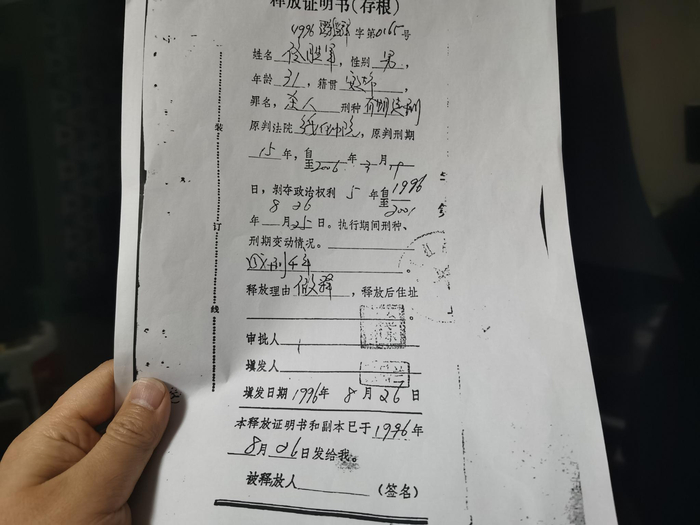 释放证明书(存根)
1996 字第0165号
姓名 胜军,性别 男,
年龄 31,籍贯,
罪名,杀人 刑种 有期徒刑
原判法院,原判刑期
15年,自至2006年3月
日,剥夺政治权利 5 年自至1996 2001
8 26
年 月25日。执行期间刑种、
刑期变动情况。
减刑4年。
释放理由 假释,释放后住址
。
审批人
填发人
填发日期 1996年 8月26日
本释放证明书和副本已于1996年
8月26日发给我。
被释放人 (签名)
装
订
线